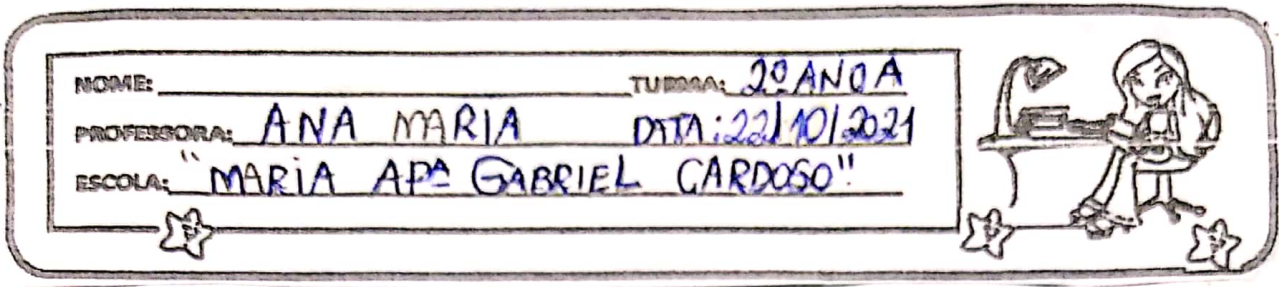 NOME: TURMA: 2º ANO A
PROFESSORA: ANA MARIA DATA: 22/10/2021
ESCOLA: "MARIA APª GABRIEL CARDOSO"